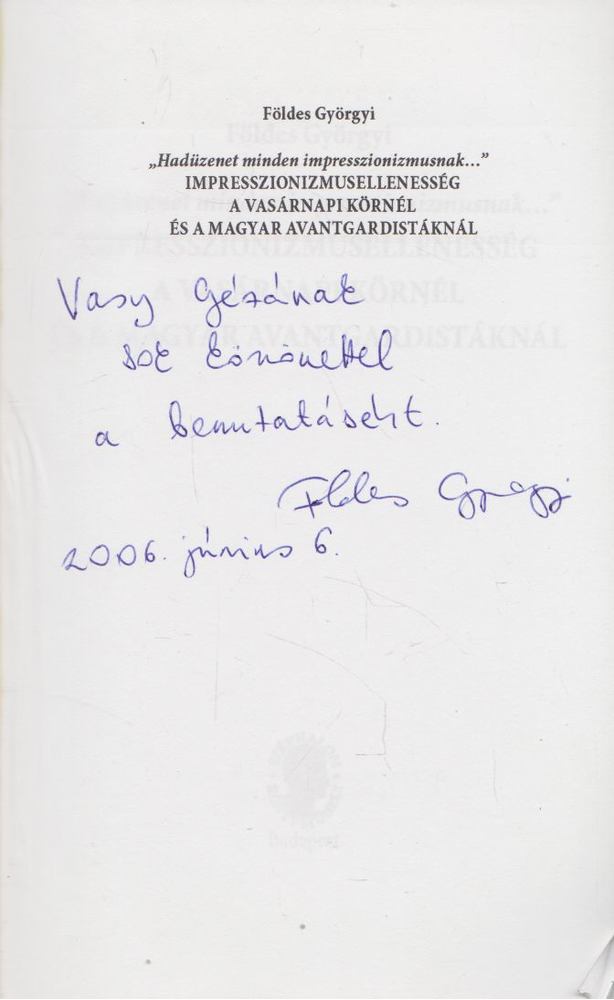 Földes Györgyi
„Hadüzenet minden impresszionizmusnak…”
IMPRESSZIONIZMUSELLENESSÉG
A VASÁRNAPI KÖRNÉL
ÉS A MAGYAR AVANTGARDISTÁKNÁL
Vasy Gézának
sok köszönettel
a bemutatásért.
Földes Györgyi
2006. június 6.
Budapest